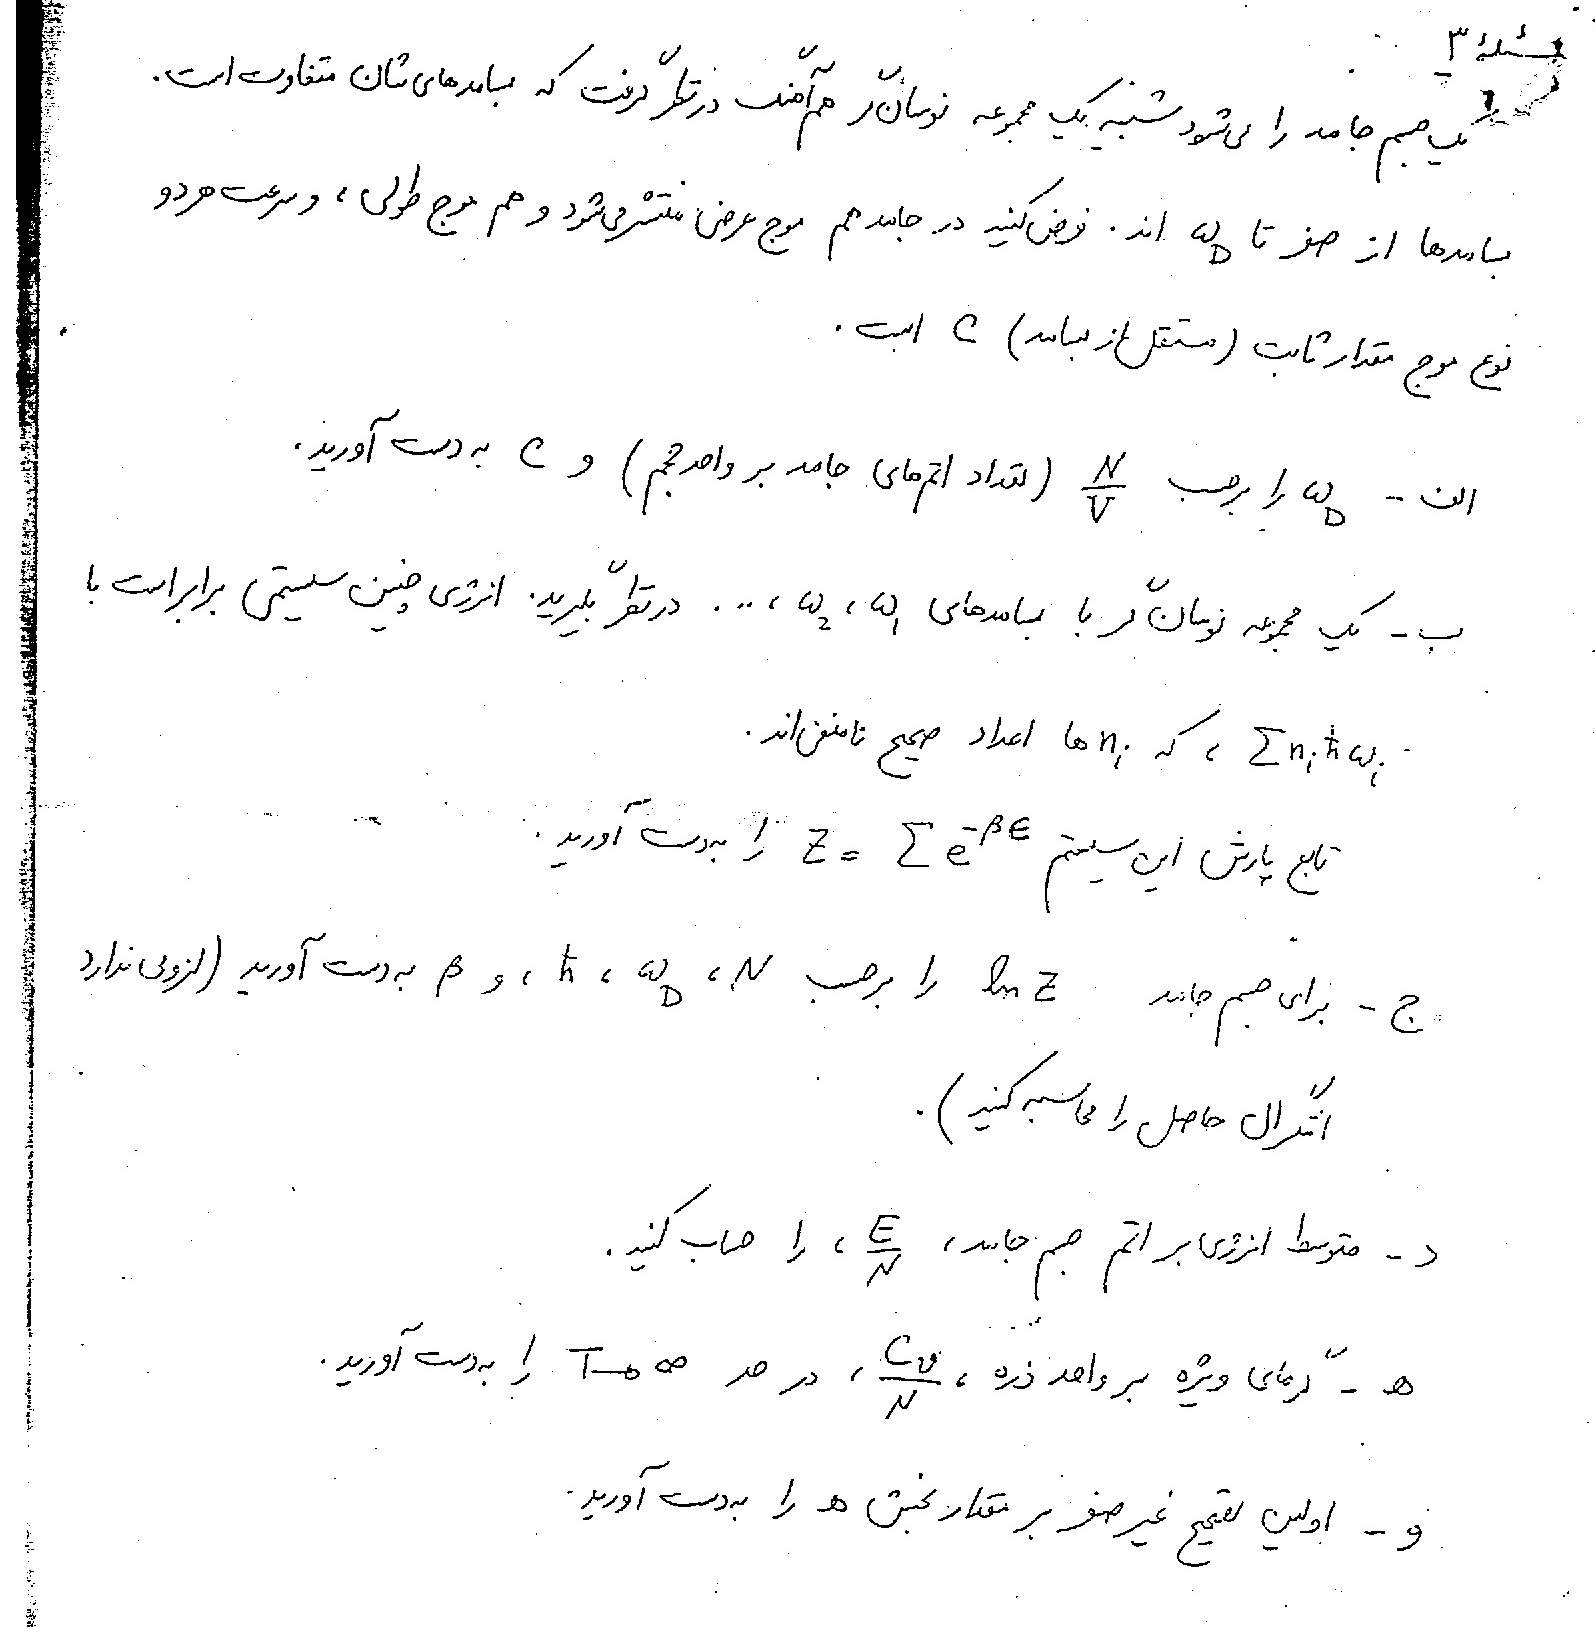 مسئلهٔ ۳
یک جسم جامد را می‌شود شبیه یک مجموعه نوسان‌گر هم‌آهنگ در نظر گرفت که بسامدهای‌شان متفاوت است.
بسامدها از صفر تا ω_D اند. فرض کنید در جامد هم موج عرضی منتشر می‌شود و هم موج طولی، و سرعت هر دو
نوع موج مقدار ثابت (مستقل از بسامد) C است.
الف - ω_D را برحسب N/V (تعداد اتم‌های جامد بر واحد حجم) و C به دست آورید.
ب - یک مجموعه نوسان‌گر با بسامدهای ω₁، ω₂، ... در نظر بگیرید. انرژی چنین سیستمی برابر است با
Σ nᵢħωᵢ ، که nᵢ ها اعداد صحیح نامنفی‌اند.
تابع پارش این سیستم Z = Σ e^{-βE} را به دست آورید.
ج - برای جسم جامد ln Z را برحسب N، ω_D، ħ، و β به دست آورید (لزومی ندارد
انتگرال حاصل را محاسبه کنید).
د - متوسط انرژی بر اتم جسم جامد، E/N، را حساب کنید.
ه - گرمای ویژه بر واحد ذره، C_v/N، در حد T→∞ را به دست آورید.
و - اولین تصحیح غیر صفر بر مقدار بخش ه را به دست آورید.